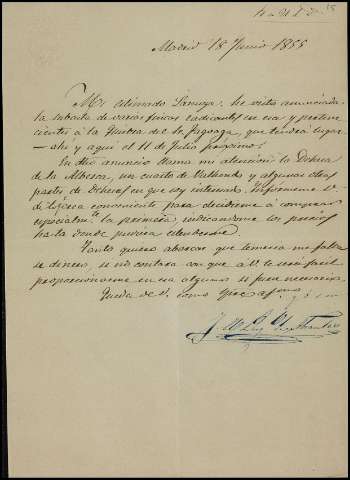 Madrid 18 Junio 1855
Mi estimado Samuza: he visto anunciada
la subasta de varias fincas radicantes en esa y pertene
cientes á la Quiebra del Sr Fagoaga, que tendrá lugar
ahi y aqui el 11 de Julio proximo.
En dho anuncio llama mi atencion la Dehesa
de la Albuera, un cuarto de y algunas otras
partes de Dehesas en que soy interesado. Informeme V.
de lo que sea conveniente para decidirme á comprar
especialmte la primera indicandome los precios
hasta donde podria estenderme.
Tanto quiero abarcar que temeria me falta
se dinero, si no contara con que a V. le será facil
proporcionarme en esa algunos si fuese necesario.
Queda de V. como siempre afmo